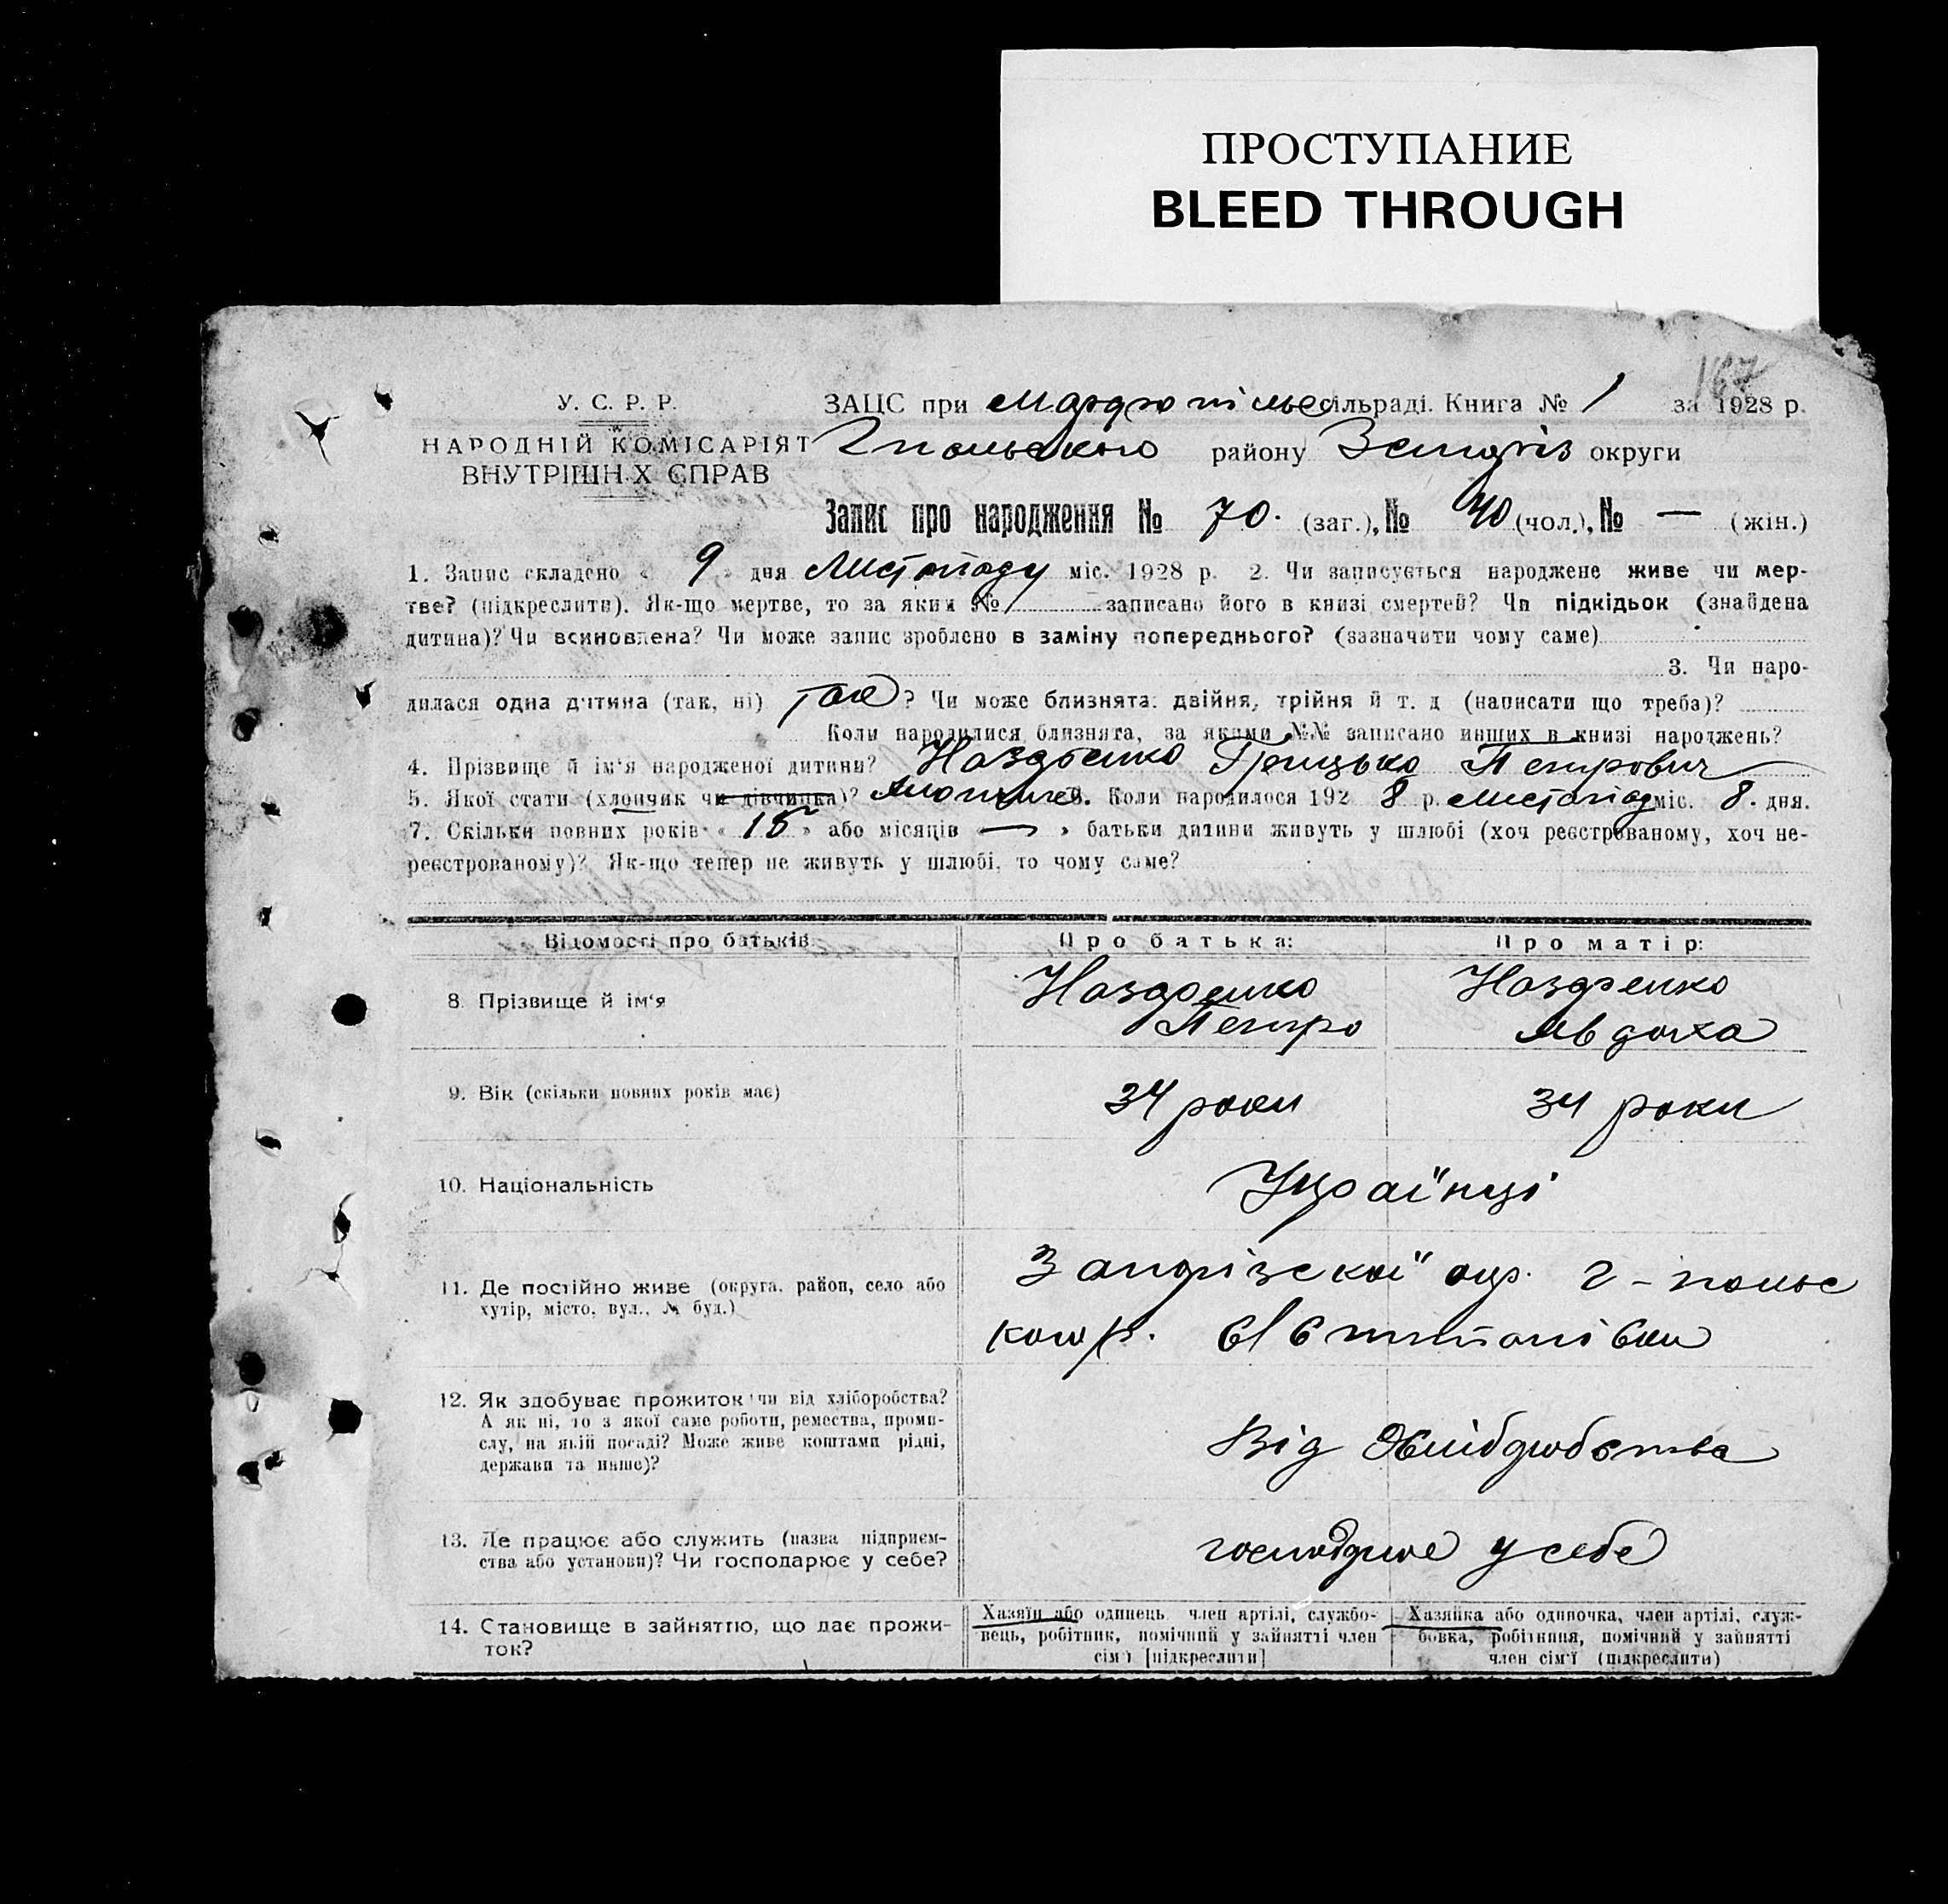 ПРОСТУПАНИЕ
BLEED THROUGH
167
У. С. Р. Р.
НАРОДНІЙ КОМІСАРІЯТ
ВНУТРІШН Х СПРАВ
ЗАЦС при Марфопільс сільраді. Книга № 1 за 1928 р.
Гпольського району Запоріз округи
Запис про народження № 70. (заг.), № 40 (чол.), № — (жін.)
1. Запис складено « 9 » дня Листопаду міс. 1928 р. 2. Чи записується народжене живе чи мер-
тве? (підкреслити). Як-що мертве, то за яким № записано його в книзі смертей? Чи підкідьок (знайдена
дитина)? Чи всиновлена? Чи може запис зроблено в заміну попереднього? (зазначити чому саме)
3. Чи наро-
дилася одна дитина (так, ні) так ? Чи може близнята: двійня, трійня й т. д (написати що треба)?
Коли народилися близнята, за якими №№ записано инших в книзі народжень?
4. Прізвище й ім'я народженої дитини? Ноздренко Грицько Петрович
5. Якої стати (хлопчик чи дівчинка)? 6. Коли народилося 192 8 р. Листопад міс. 8. дня.
7. Скільки повних років « 15 » або місяців « — » батьки дитини живуть у шлюбі (хоч реєстрованому, хоч не-
реєстрованому)? Як-що тепер не живуть у шлюбі, то чому саме?
Відомості про батьків: Про батька: Про матір:
8. Прізвище й ім'я Ноздренко Ноздренко
Петро Явдоха
9. Вік (скільки повних років має) 34 роки 34 роки
10. Національність Українці
11. Де постійно живе (округа, район, село або
хутір, місто, вул., № буд.)
Запорізської окр. Г-польс
кого р.
12. Як здобуває прожиток чи від хліборобства?
А як ні, то з якої саме роботи, ремества, проми-
слу, на якій посаді? Може живе коштами рідні,
держави та инше)?
Від Хліборобства
13. Де працює або служить (назва підприєм-
ства або установи)? Чи господарює у себе?
господрює у себе
14. Становище в зайняттю, що дає прожи-
ток?
Хазяїн або одинець член артілі, службо-
вець, робітник, помічний у зайнятті член
сім'ї [підкреслити]
Хазяйка або одиночка, член артілі, служ-
бовка, робітниця, помічний у зайнятті
член сім'ї (підкреслити)